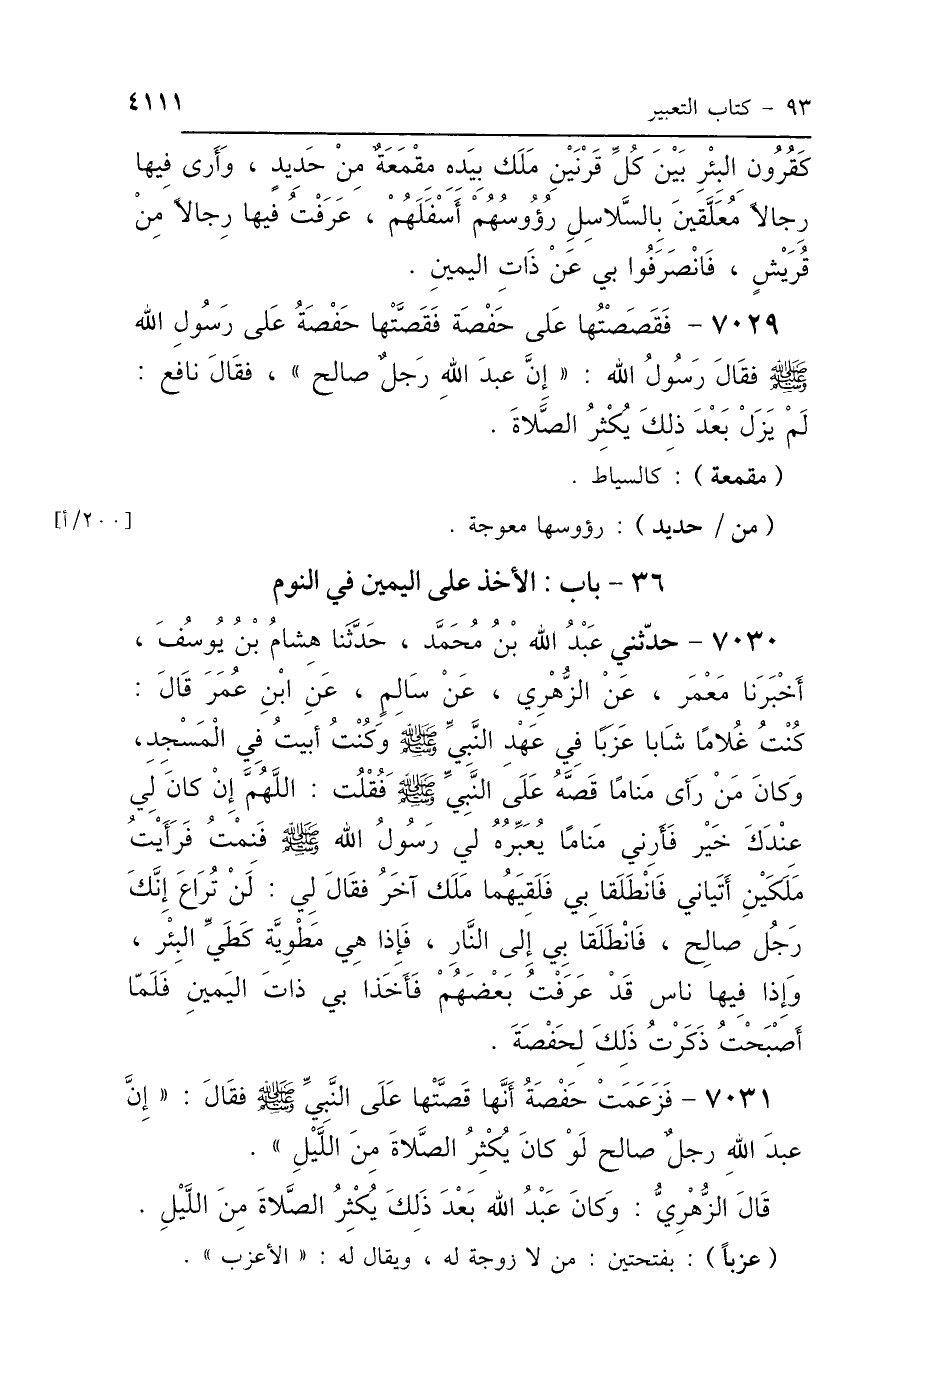 ٩٣ - كتاب التعبير ٤١١١
كَقُرُونِ البِئْرِ بَيْنَ كُلِّ قَرْنَيْنِ مَلَكٌ بِيَدِهِ مِقْمَعَةٌ مِنْ حَدِيدٍ ، وَأَرى فِيها
رِجالاً مُعَلَّقِينَ بِالسَّلاسِلِ رُؤُوسُهُمْ أَسْفَلَهُمْ ، عَرَفْتُ فِيها رِجالاً مِنْ
قُرَيْشٍ ، فَانْصَرَفُوا بي عَنْ ذَاتِ اليمينِ .
٧٠٢٩ - فَقَصَصْتُها عَلى حَفْصَةَ فَقَصَّتْها حَفْصَةُ عَلى رَسُولِ الله
ﷺ فقالَ رَسُولُ الله : « إنَّ عبدَ اللهِ رَجلٌ صالح » ، فقالَ نافع :
لَمْ يَزَلْ بَعْدَ ذلِكَ يُكْثِرُ الصَّلاةَ .
( مقمعة ) : كالسياط .
( من / حديد ) : رؤوسها معوجة . [٢٠٠/أ]
٣٦ - باب : الأخذ على اليمين في النوم
٧٠٣٠ - حدّثني عَبْدُ الله بْنُ مُحَمَّد ، حَدَّثَنا هِشامُ بْنُ يُوسُفَ ،
أَخْبَرَنا مَعْمَر ، عَنْ الزُّهْرِي ، عَنْ سَالِمٍ ، عَنِ ابْنِ عُمَرَ قَالَ :
كُنْتُ غُلامًا شابا عزَبًا فِي عَهْدِ النَّبِيِّ ﷺ وَكُنْتُ أبيتُ فِي الْمَسْجِدِ،
وَكَانَ مَنْ رأى مَنامًا قَصَّهُ عَلَى النَّبِيِّ ﷺ فَقُلْت : اللَّهُمَّ إنْ كانَ لِي
عِنْدَكَ خَيْر فَأَرِني مَنامًا يُعَبِّرُهُ لي رَسُولُ الله ﷺ فَنِمْتُ فَرَأَيْتُ
مَلَكَيْنِ أَتَياني فَانْطَلَقا بِي فَلَقِيَهُما مَلَك آخَرُ فقالَ لِي : لَنْ تُرَاعَ إنَّكَ
رَجُل صالِح ، فَانْطَلَقا بِي إلى النَّارِ ، فَإذا هِي مَطْوِيَّة كَطَيِّ البِئْرِ ،
وَإذا فِيها ناس قَدْ عَرَفْتُ بَعْضَهُمْ فَأَخَذا بي ذاتَ اليَمينِ فَلَمّا
أَصْبَحْتُ ذَكَرْتُ ذَلِكَ لِحَفْصَةَ .
٧٠٣١ - فَزَعَمَتْ حَفْصَةُ أَنَّها قَصَّتْها عَلَى النَّبِيِّ ﷺ فقالَ : « إنَّ
عبدَ اللهِ رجلٌ صالح لَوْ كانَ يُكْثِرُ الصَّلاةَ مِنَ اللَّيْلِ » .
قَالَ الزُّهْرِيُّ : وَكانَ عَبْدُ الله بَعْدَ ذَلِكَ يُكْثِرُ الصَّلاةَ مِنَ اللَّيْلِ .
( عزباً ) : بفتحتين : من لا زوجة له ، ويقال له : « الأعزب » .